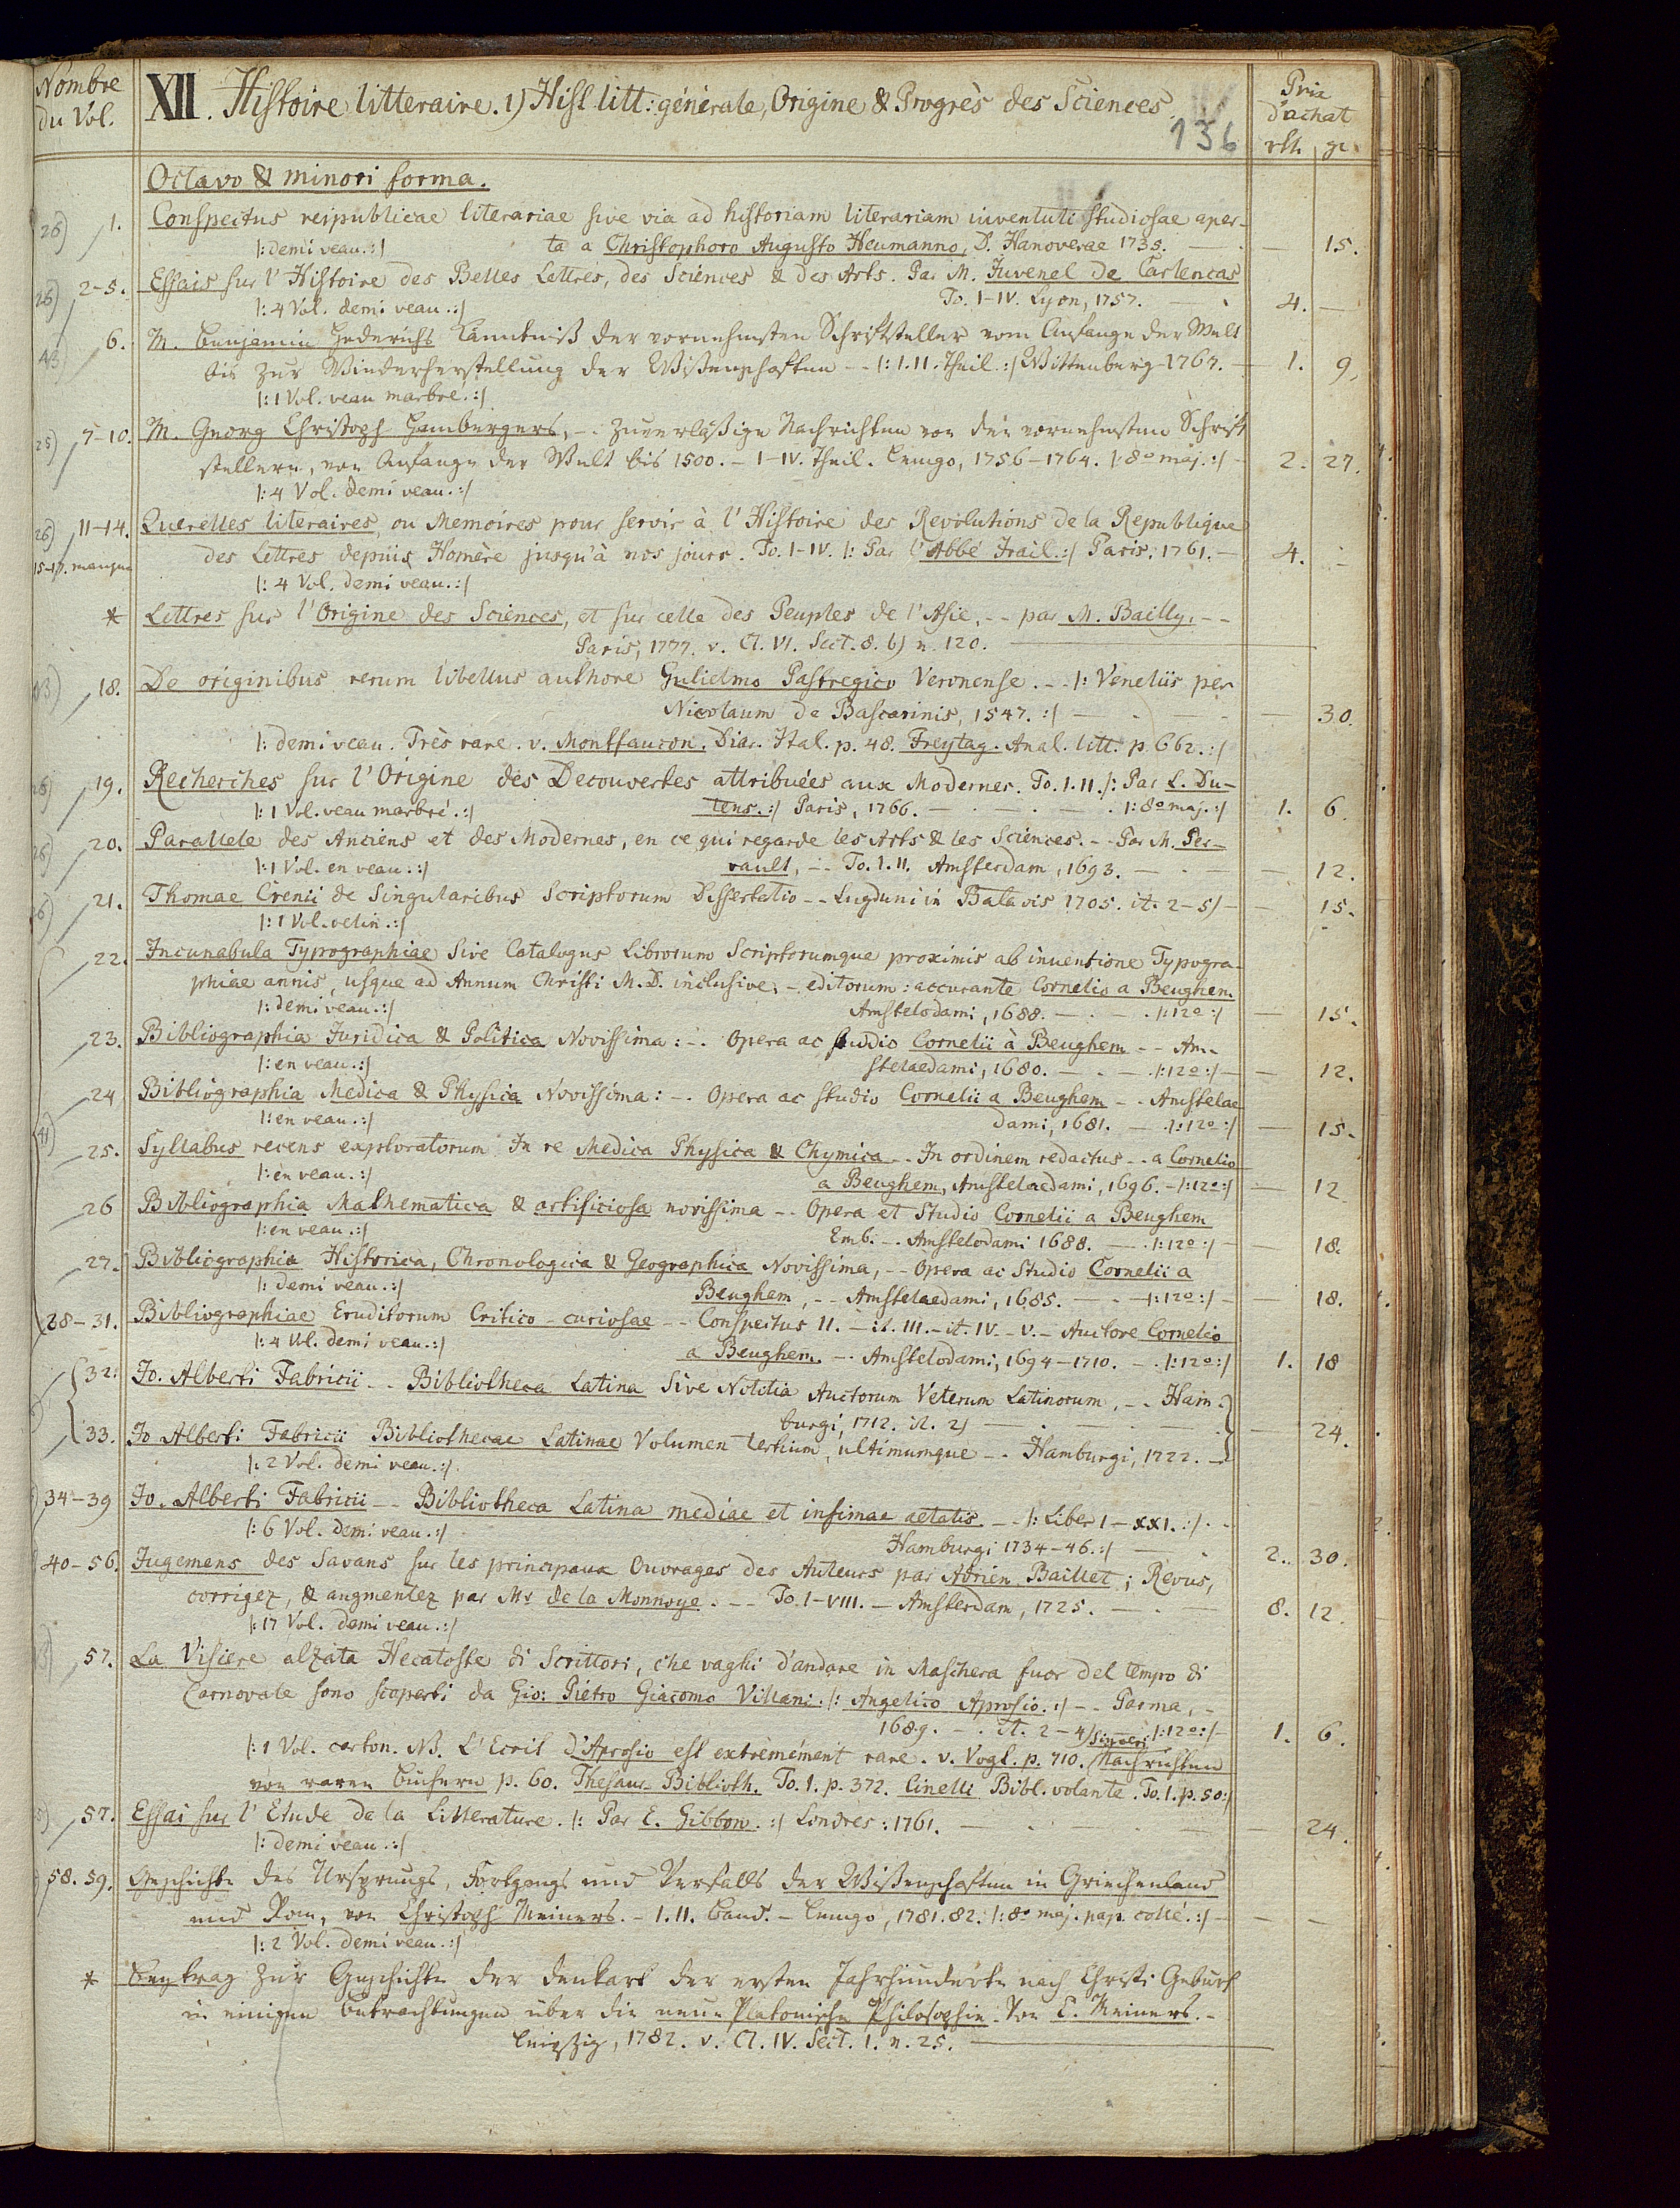 Nombre du Vol.
XII. Histoire litteraire. 1) Hist. litt: générale, Origine & Progrès des Sciences.
136
Prix d'achat
rth. gr.
Octavo & minori forma.
26) 1. Conspectus reipublicae literariae sive via ad historiam literariam iuventuti studiosae aper-
|: demi veau. :| ta a Christophoro Augusto Heumanno, D. Hanoverae 1735. — . — 15.
26) 2-5. Essais sur l'Histoire des Belles Lettres, des Sciences & des Arts. Par M. Juvenel de Carlencas
|: 4 Vol. demi veau. :| To. I-IV. Lyon, 1757. — . 4. —
43) 6. M. Benjamin Hederichs Känntniß der vornehmsten Schriftsteller vom Anfange der Welt
bis zur Wiederherstellung der Wißenschaften -- |: I. II. Theil. :| Wittenberg 1767. — 1. 9.
|: 1 Vol. veau marbre. :|
25) 7-10. M. Georg Christoph Hambergers, -. Zuverläßige Nachrichten von den vornehmsten Schrift
stellern, von Anfange der Welt bis 1500. - I-IV. Theil. Lemgo, 1756-1764. |: 8o maj. :| - 2. 27.
|: 4 Vol. demi veau. :|
26) 11-14. Querelles literaires, ou Memoires pour servir à l'Histoire des Revolutions de la Republique
15-17. manque des Lettres depuis Homère jusqu'à nos jours. To. I-IV. |: Par l'Abbé Irail. :| Paris. 1761. — 4. -
|: 4 Vol. demi veau. :|
* Lettres sur l'Origine des Sciences, et sur celle des Peuples de l'Asie, -- par M. Bailly. --
Paris, 1777. v. Cl. VI. Sect. 8. b) n. 120.
43) 18. De originibus rerum libellus authore Gulielmo Pastregico Veronense. -- |: Venetiis per
Nicolaum de Bascarinis, 1547. :| — . — — 30.
|: demi veau. Très rare. v. Montfaucon. Diar. Ital. p. 48. Freytag. Anal. litt. p. 662. :|
26) 19. Recherches sur l'Origine des Decouvertes attribuées aux Modernes. To. I. II. |: Par L. Du-
|: 1 Vol. veau marbré. :| tens. :| Paris, 1766. — . — . — . |: 8o maj. :| 1. 6.
26) 20. Parallele des Anciens et des Modernes, en ce qui regarde les Arts & les Sciences. -- Par M. Per-
|: 1 Vol. en veau. :| rault, -- To. I. II. Amsterdam, 1693. — . — — 12.
21. Thomae Crenii de Singularibus Scriptorum Dissertatio -- Lugduni in Batavis 1705. it. 2-5) — — 15.
|: 1 Vol. velin. :|
22. Incunabula Typographiae Sive Catalogus Librorum Scriptorumque proximis ab inventione Typogra-
phiae annis, usque ad Annum Christi M.D. inclusive, - editorum: accurante Cornelio a Beughem.
|: demi veau. :| Amstelodami, 1688. — . — . |: 12o :| — 15.
23. Bibliographia Juridica & Politica Novissima: -. Opera ac studio Cornelii à Beughem -- Am-
|: en veau. :| stelaedami, 1680. — . — . |: 12o :| — — 12.
24. Bibliographia Medica & Physica Novissima: -. Opera ac studio Cornelii a Beughem -- Amstelae
|: en veau. :| dami, 1681. — . |: 12o :| — 15.
41) 25. Syllabus recens exploratorum In re Medica Physica & Chymica -- In ordinem redactus -- a Cornelio
|: en veau. :| a Beughem, Amstelaedami, 1696. - |: 12o :| — 12
26 Bibliographia Mathematica & artificiosa novissima -- Opera et Studio Cornelii a Beughem
|: en veau. :| Emb. -. Amstelodami 1688. — . |: 12o :| — — 18.
27. Bibliographia Historica, Chronologica & Geographica Novissima, -- Opera ac Studio Cornelii a
|: demi veau. :| Beughem, -- Amstelaedami, 1685. — . — |: 12o :| — — 18.
28-31. Bibliographiae Eruditorum Critico-curiosae -- Conspectus II. - it. III. - it. IV. - V. - Auctore Cornelio
|: 4 Vol. demi veau. :| a Beughem. -. Amstelodami, 1694-1710. — . |: 12o :| 1. 18
32. Jo. Alberti Fabricii -- Bibliotheca Latina Sive Notitia Auctorum Veterum Latinorum, -- Ham-
burgi, 1712. it. 2) — . — . — — 24.
33. Jo Alberti Fabricii Bibliothecae Latinae Volumen tertium, ultimumque -- Hamburgi, 1722. —
|: 2 Vol. demi veau. :|
34-39 Jo. Alberti Fabricii -- Bibliotheca Latina mediae et infimae aetatis -- |: Liber I-XXI. :| . -
|: 6 Vol. demi veau. :| Hamburgi 1734-46. :| — . 2. 30.
40-56. Jugemens des Savans sur les principaux Ouvrages des Auteurs par Adrien Baillet; Revus,
corrigez, & augmentez par Mr de la Monnoye. -- To. I-VIII. - Amsterdam, 1725. — . — 8. 12.
|: 17 Vol. demi veau. :|
57. La Visiere alzata Hecatoste di Scrittori, che vaghi d'andare in Maschera fuor del tempo di
Carnovale sono scoperti da Gio: Pietro Giacomo Villani. |: Angelico Aprosio. :| -- Parma, -
1689. -. it. 2-4) |: 12o :| — 1. 6.
|: 1 Vol. carton. NB. L'Ecrit d'Aprosio est extrèmément rare. v. Vogl. p. 710. Sinceri Nachrichten
von raren Büchern p. 60. Thesaur. Biblioth. To. I. p. 372. Cinelli Bibl. volante. To. I. p. 50 :|
57. Essai sur l'Etude de la Litterature. |: Par E. Gibbon. :| Londres: 1761. — . — . — — 24.
|: demi veau. :|
58. 59. Geschichte des Ursprungs, Fortgangs und Verfalls der Wißenschaften in Griechenland
und Rom, von Christoph Meiners. - I. II. Band. - Lemgo, 1781. 82. |: 8o maj. pap. collé. :| — — —
|: 2 Vol. demi veau. :|
* Beytrag zur Geschichte der Denkart der ersten Jahrhunderte nach Christi Geburt
in einigen Betrachtungen über die neue Platonische Philosophie. Von C. Meiners. -
Leipzig, 1782. v. Cl. IV. Sect. 1. n. 25.